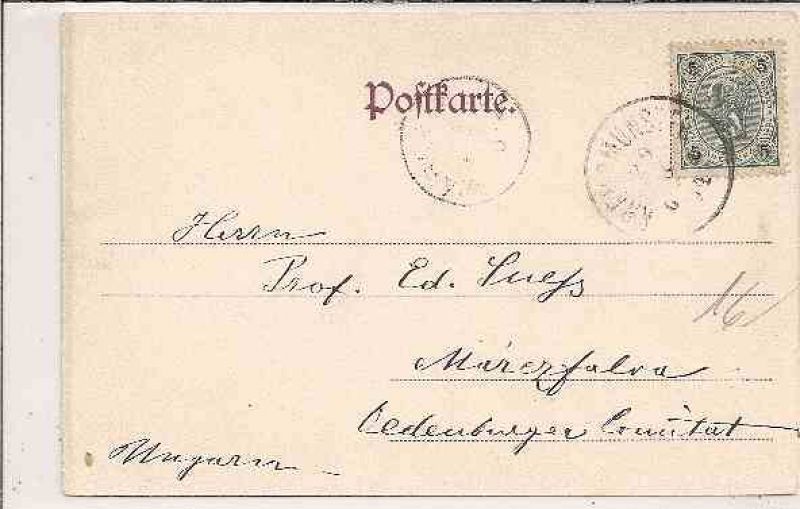 Postkarte.
5 5
5 5
Herrn
Prof. Ed. Suess
16
Márczfalva
Oedenburger Comitat
Ungarn